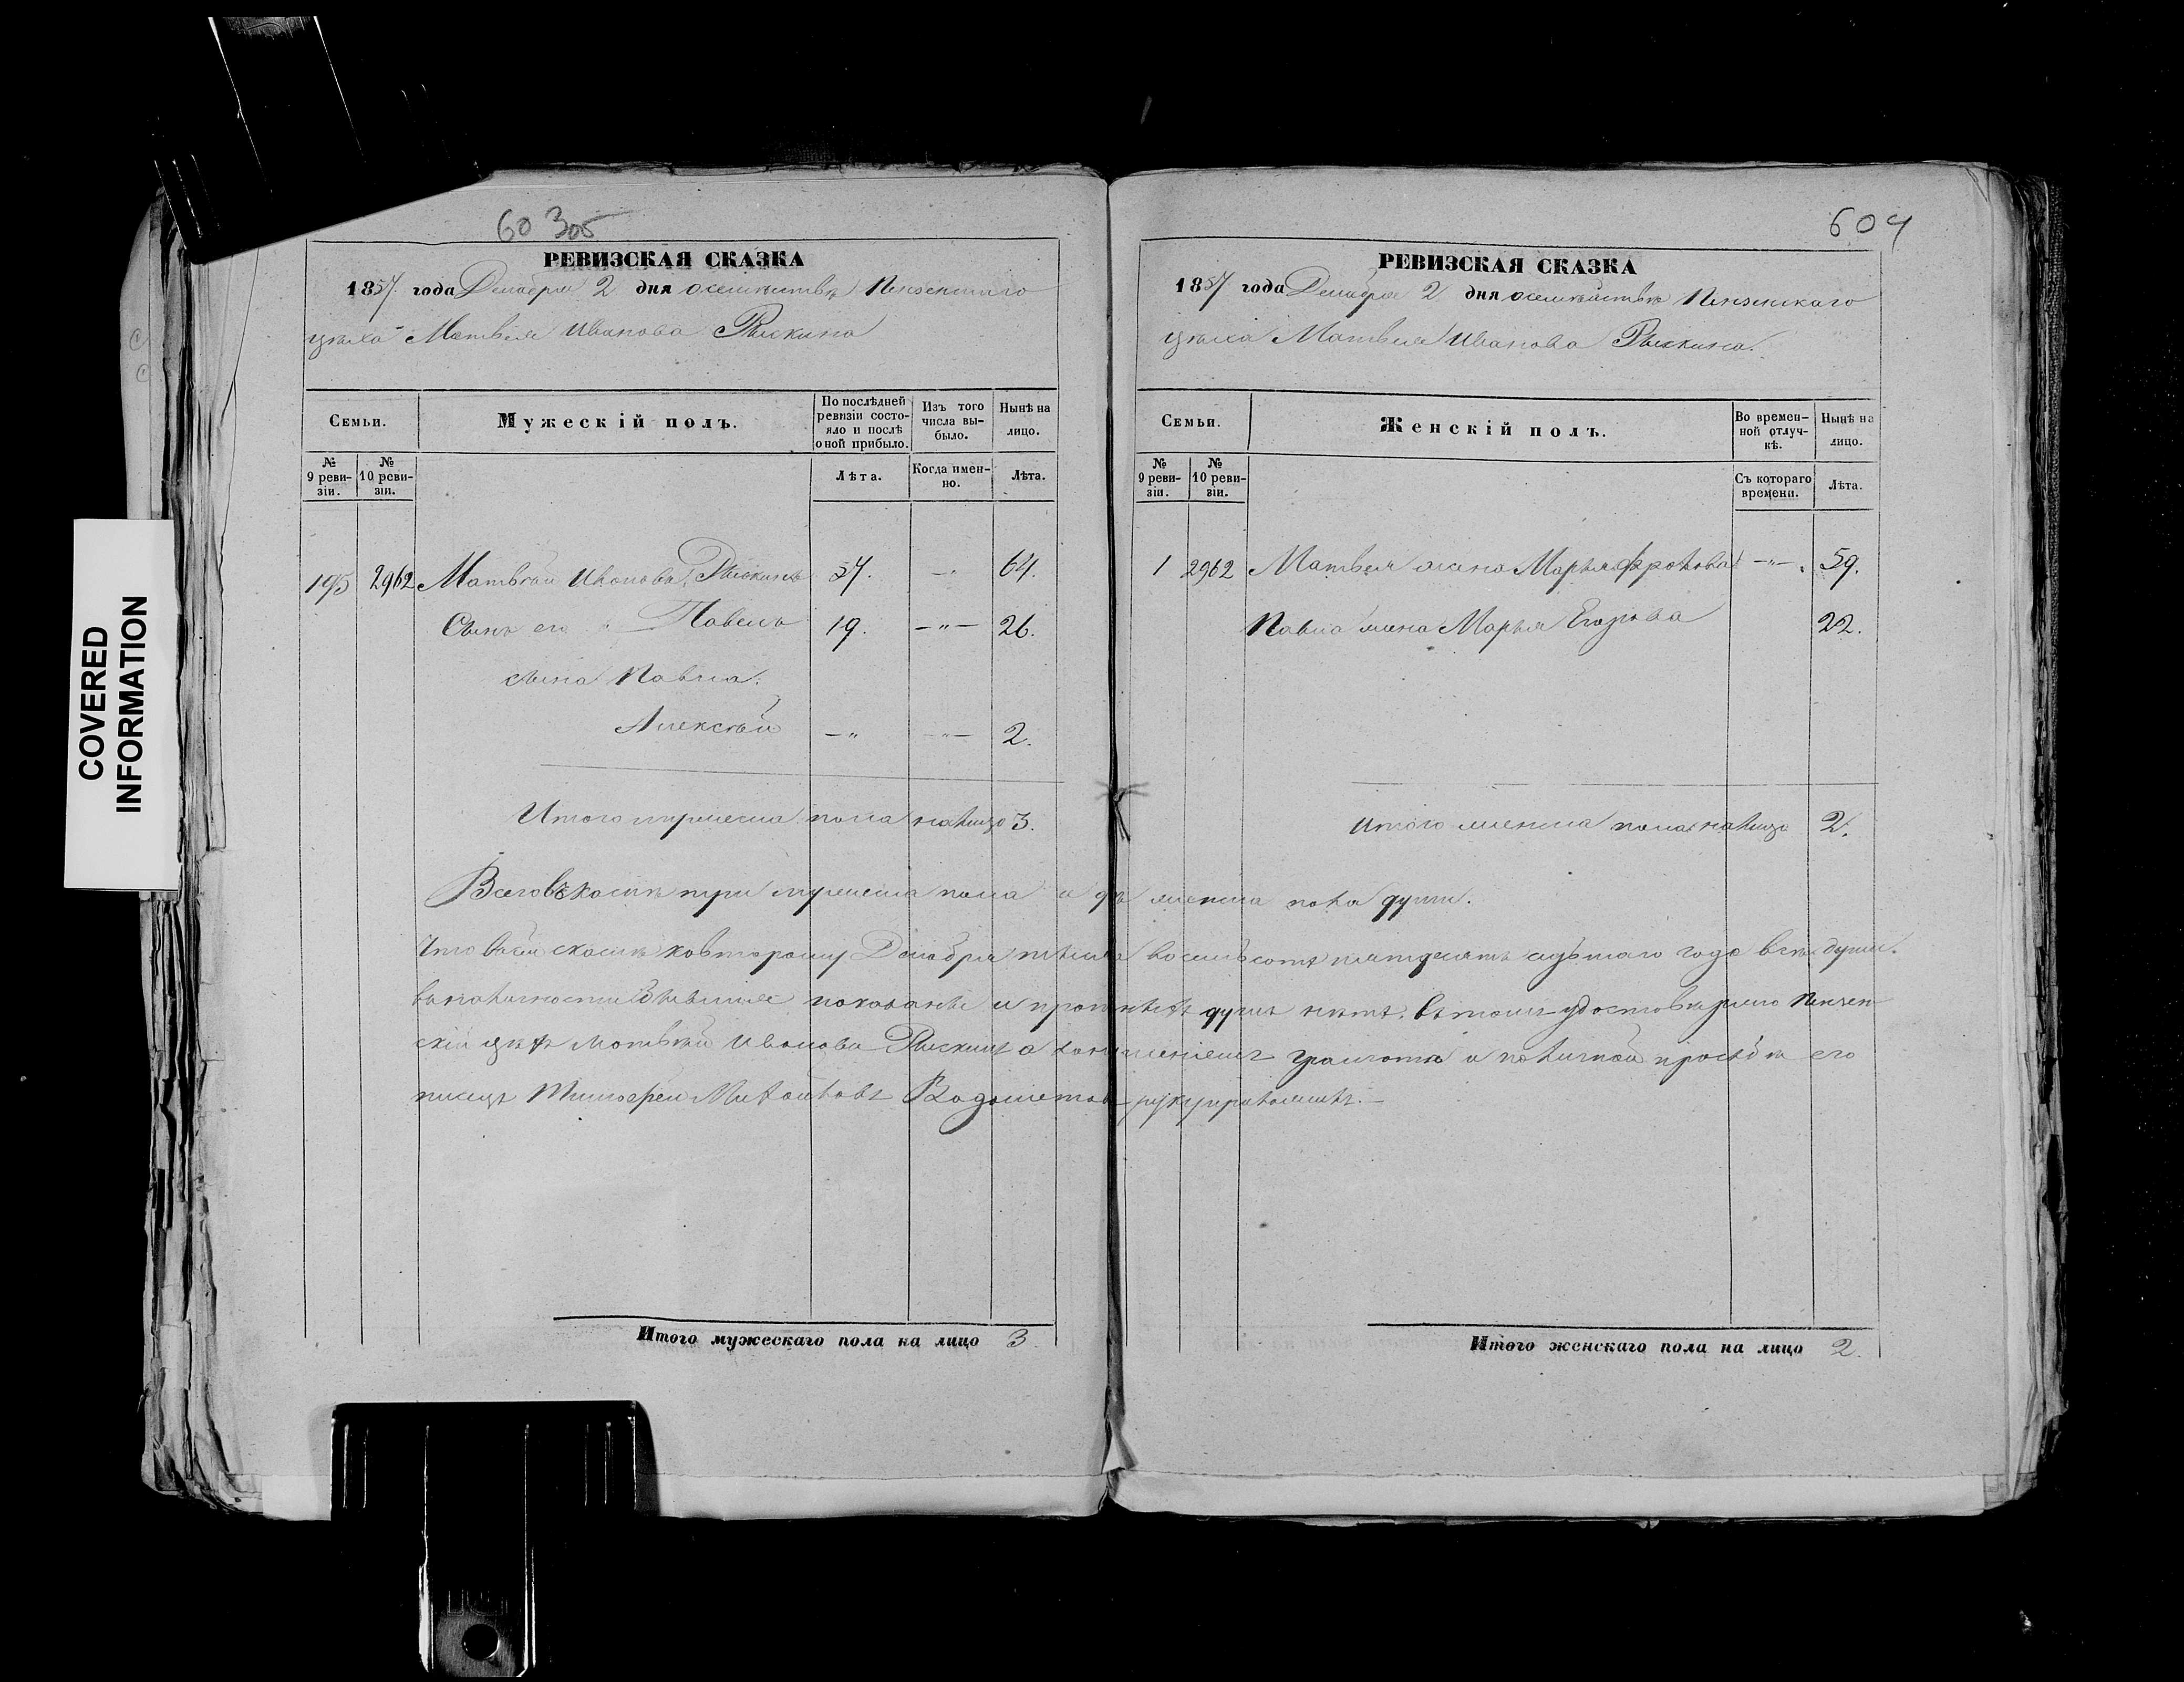 60 305
РЕВИЗСКАЯ СКАЗКА
1857 года Декабря 2 дня о семѣйствѣ Пензенскаго
цѣха Матвѣя Иванова Рыскина
Семьи.
Мужескій полъ.
По послѣдней ревизіи состояло и послѣ оной прибыло.
Изъ того числа выбыло.
Нынѣ на лицо.
№ 9 ревизіи.
№ 10 ревизіи.
Лѣта.
Когда именно.
Лѣта.
195 2962 Матвѣй Ивановъ Рыскинъ 57. —"— 64.
Сынъ его Павелъ 19. —"— 26.
сына Павла.
Алексѣй —" —"— 2.
Итого мужеска пола налицо 3.
Итого мужескаго пола на лицо 3
604
РЕВИЗСКАЯ СКАЗКА
1857 года Декабря 2 дня о семѣйствѣ Пензенскаго
цѣха Матвѣя Иванова Рыскина.
Семьи.
Женскій полъ.
Во временной отлучкѣ.
Нынѣ на лицо.
№ 9 ревизіи.
№ 10 ревизіи.
Съ котораго времени.
Лѣта.
1 2962 Матвея жена Марья Фролова —"—. 59.
Павла жена Марья Егорова 22.
Итого женска пола налицо 2.
Всего въ скаскѣ три мужеска пола и двѣ женска пола души.
Что въ сей скаскѣ ко второму Декабря тысяча восемьсотъ пятдесятъ седьмаго года всѣ души
въ наличности бывшия показаны и прописныхъ душъ нѣтъ. Въ томъ удостовѣряю Пензен-
скій цѣх Матвѣй Ивановъ Рыскинъ а грамоты и по личной прозьбѣ его
писецъ Тимофей Михайловъ руку приложилъ.—
Итого женскаго пола на лицо 2.
COVERED
INFORMATION